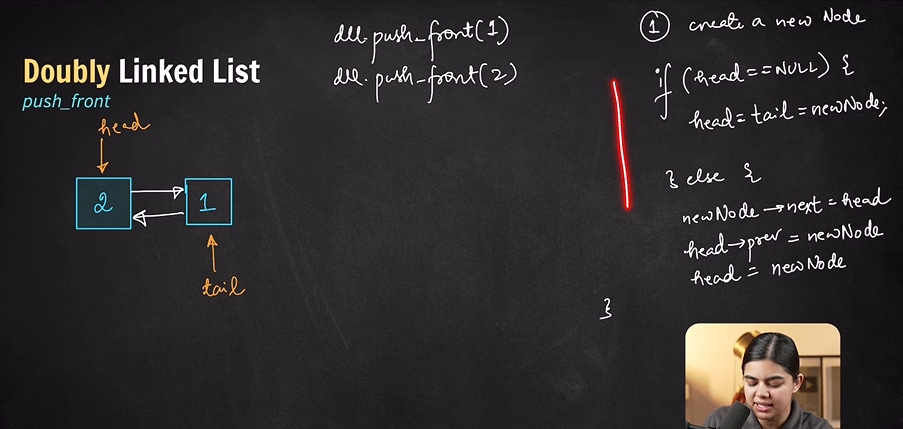 Doubly Linked List
push_front
dll.push_front(1)
dll.push_front(2)
head
2
1
tail
1 create a new Node
if (head==NULL) {
head=tail=newNode;
} else {
newNode→next=head
head→prev = newNode
head = newNode
}